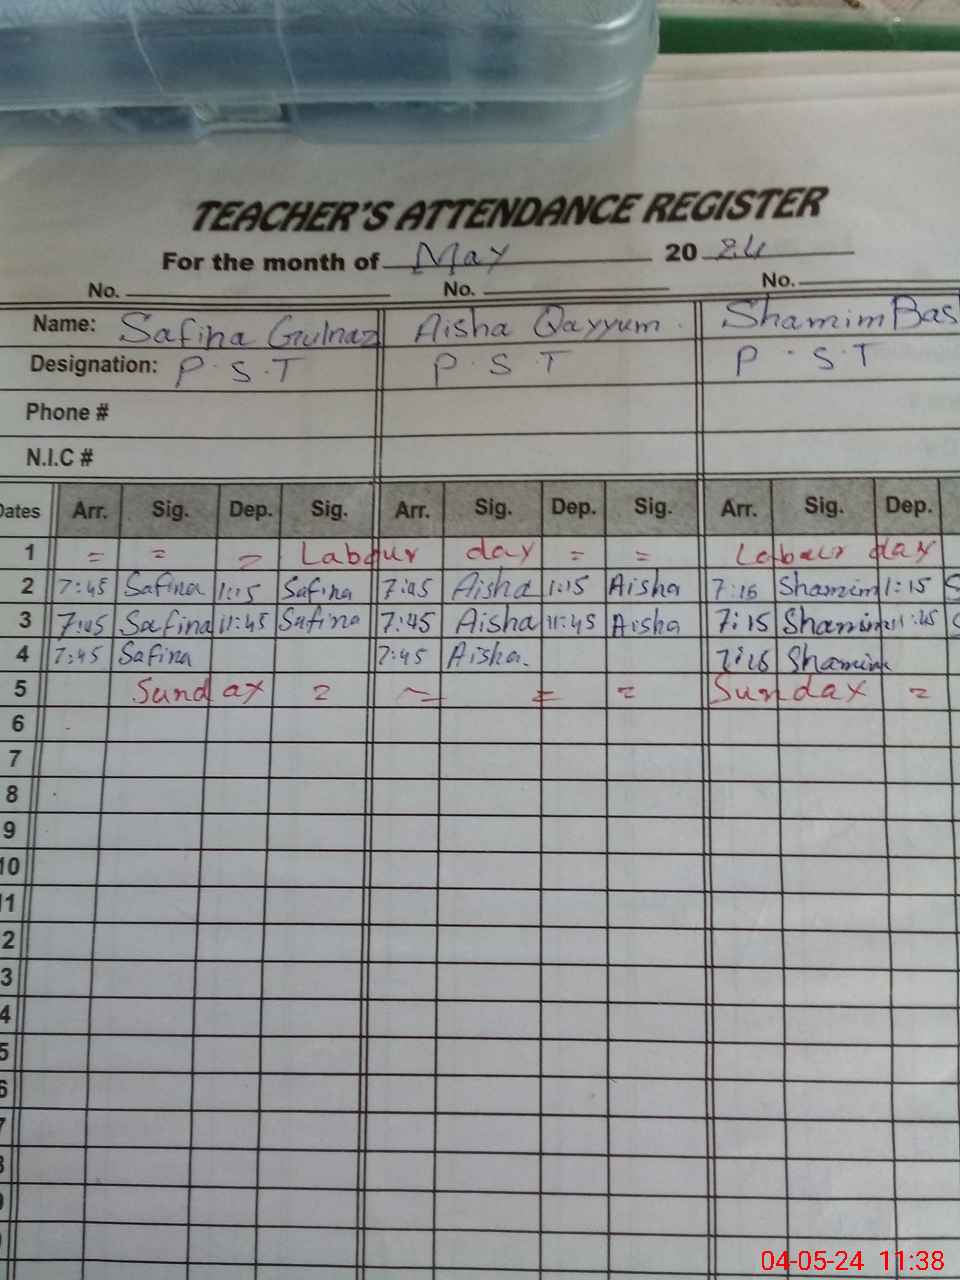 TEACHER'S ATTENDANCE REGISTER
For the month of May 20 24
No. No. No.
Name: Safina Gulnaz Aisha Qayyum. Shamim Bas
Designation: P.S.T P.S.T P.S.T
Phone #
N.I.C #
Dates Arr. Sig. Dep. Sig. Arr. Sig. Dep. Sig. Arr. Sig. Dep.
1 = = = Labour day = = Labour day
2 7:45 Safina 1:15 Safina 7:45 Aisha 1:15 Aisha 7:15 Shamim 1:15 S
3 7:45 Safina 11:45 Safina 7:45 Aisha 11:45 Aisha 7:15 Shamim 11:45 S
4 7:45 Safina 7:45 Aisha. 7:15 Shamim
5 Sunday = = = = Sunday =
6
7
8
9
10
11
2
3
4
5
6
7
8
9
04-05-24 11:38